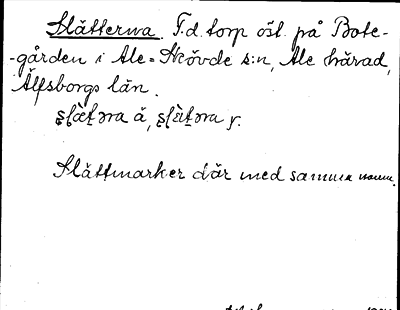 Slätterna. F.d. torp östl. på Bote-
-gården i Ale-Skövde s:n, Ale härad,
Älfsborgs län.
Slättmarker där med samma namn.